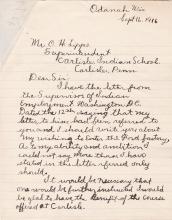 Odanah, Wis
Sept 12, 1916
Mr. O. H. Lipps
Superintendent
Carlisle Indian School
Carlisle, Penn
Dear Sir:
I have the letter from
the Supervisor of Indian
Employment Washington D.C.
Dated the saying that my
letter to him had been referred to
you and I should write you about
my wishing to enter the Ford factory,
As to my ability and ambition I
could not say more than I have
stated in the letter referred only
should
It would be necessary that
one would be further instructed I would
be glad to have the benefit of the course
offered at Carlisle.